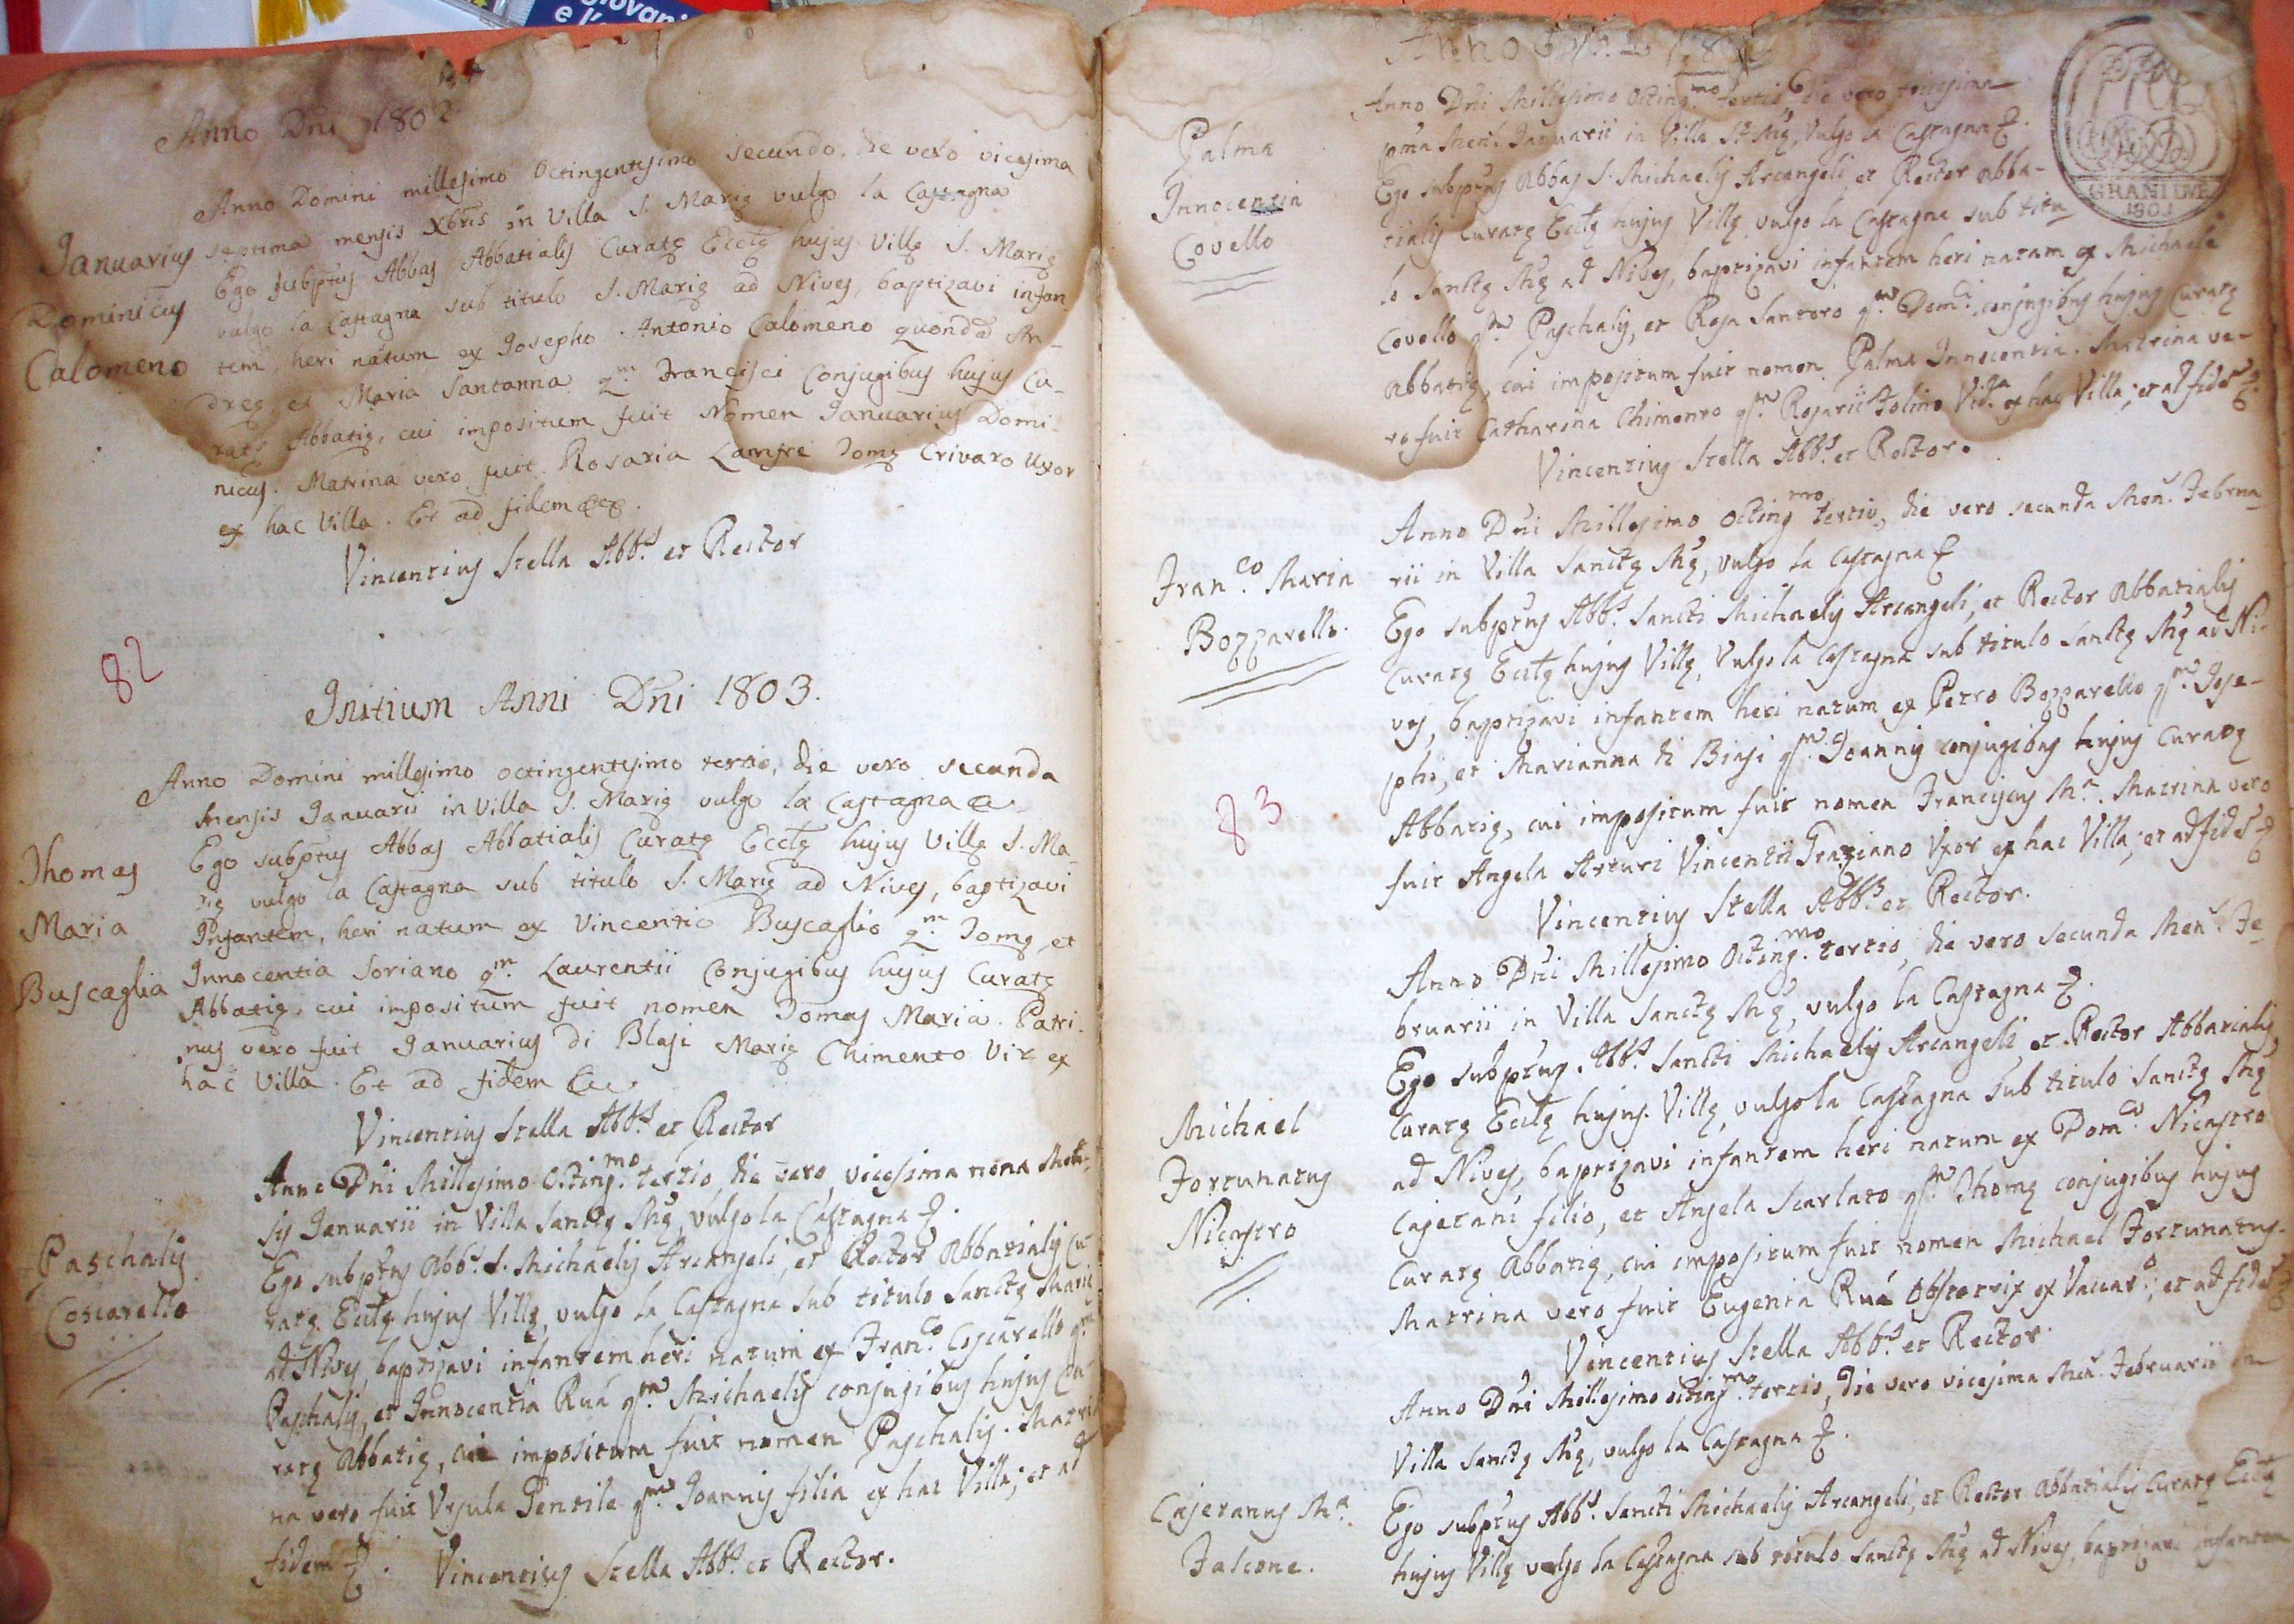 Giovani
e l'
Anno Dñi 1802
Januarius
Dominicus
Calomeno
Anno Domini millesimo Octingentesimo secundo, die vero vicesima
septima mensis Xbris in Villa S. Marię vulgo la Castagna
Ego Subptus Abbas Abbatialis Curatę Ecctę hujus Villę S. Marię
vulgo la Castagna sub titulo S. Marię ad Nives, baptizavi infan
tem, heri natum ex Josepho Antonio Calomeno quondã An-
dreę, et Maria Santanna qm. Francisci Conjugibus hujus Cu-
ratę Abbatię, cui impositum fuit Nomen Januarius Domi-
nicus. Matrina vero fuit Rosaria Lamfre Domę Crivaro Uxor
ex hac Villa. Et ad fidem &c.
Vincentius Stella Abbs. et Rector
82
Initium Anni Dñi 1803.
Thomas
Maria
Buscaglia
Anno Domini millesimo octingentesimo tertio, die vero secunda
Mensis Januarii in Villa S. Marię vulgo la Castagna &
Ego subptus Abbas Abbatialis Curatę Ecctę hujus Villę S. Ma-
rię vulgo la Castagna sub titulo S. Marię ad Nives, baptizavi
Infantem, heri natum ex Vincentio Buscaglio qm. Domę, et
Innocentia Soriano qm. Laurentii Conjugibus hujus Curatę
Abbatię, cui impositum fuit nomen Tomas Maria. Patri-
nus vero fuit Januarius di Blasi Marię Chimento Vir ex
hac Villa. Et ad fidem &c.
Vincentius Stella Abbs. et Rector
Paschalis
Coscarello
Anno Dñi Millesimo Octing.mo tertio, die vero vicesima nona Men-
sis Januarii in Villa Sanctę Mę, vulgo la Castagna &.
Ego subptus Abbs. S. Michaelis Arcangeli, et Rector Abbatialis Cu-
ratę Ecctę hujus Villę, vulgo la Castagna sub titulo Sanctę Marię
ad Nives, baptizavi infantem heri natum ex Fran.co Coscarello qm.
Paschalis, et Innocentia Ruá qm. Michaelis conjugibus hujus Cu-
ratę Abbatię, cui impositum fuit nomen Paschalis. Matri-
na vero fuit Ursula Gentile qm. Joannis filia ex hac Villa; et ad
fidem &. Vincentius Stella Abbs. et Rector.
Anno 
GRANI UNO
1803
Palma
Innocentia
Covello
Anno Dñi Millesimo Octing.mo tertio, die vero tricesima
pma Men. Januarii in Villa Sę Mę, vulgo la Castagna &.
Ego subptus Abbas S. Michaelis Arcangeli, et Rector abba-
tialis Curatę Ecctę hujus Villę vulgo la Castagna sub titu-
lo Sanctę Mę ad Nives, baptizavi infantem heri natam ex Michaele
Covello qm. Paschalis, et Rosa Santoro qm. Dom.ci conjugibus hujus Curatę
Abbatię, cui impositum fuit nomen Palma Innocentia. Matrina ve-
ro fuit Catharina Chimento qm. Rosarii Vid.a ex hac Villa; et ad fidẽ &.
Vincentius Stella Abbs. et Rector.
Fran.co Maria
Bozzarello.
Anno Dñi Millesimo Octing.mo tertio, die vero secunda Men. Februa-
rii in Villa Sanctę Mę, vulgo la Castagna &
Ego subptus Abbs. Sancti Michaelis Arcangeli, et Rector Abbatialis
Curatę Ecctę hujus Villę, vulgo la Castagna sub titulo Sanctę Mę ad Ni-
ves, baptizavi infantem heri natum ex Petro Bozzarello qm. Jose-
phi, et Marianna di Biasi qm. Joannis conjugibus hujus Curatę
83
Abbatię, cui impositum fuit nomen Franciscus Ma. Matrina vero
fuit Angela Arturi Vincentii Graziano Uxor ex hac Villa; et ad fidẽ &
Vincentius Stella Abbs. et Rector.
Michael
Fortunatus
Nicastro
Anno Dñi Millesimo Octing.mo tertio, die vero secunda Men. Fe-
bruarii in Villa Sanctę Mę, vulgo la Castagna &.
Ego subptus Abbs. Sancti Michaelis Arcangeli, et Rector Abbatialis
Curatę Ecctę hujus Villę, vulgo la Castagna sub titulo Sanctę Mę
ad Nives, baptizavi infantem heri natum ex Dom.co Nicastro
Cajetani filio, et Angela Scarlato qm. Thomę conjugibus hujus
Curatę Abbatię, cui impositum fuit nomen Michael Fortunatus.
Matrina vero fuit Eugenia Ruá Obstetrix ex; et ad fidẽ &
Vincentius Stella Abbs. et Rector.
Cajetanus Ma.
Falcone.
Anno Dñi Millesimo octing.mo tertio, die vero vicesima Men. Februarii in
Villa Sanctę Mę, vulgo la Castagna &.
Ego subptus Abbs. Sancti Michaelis Arcangeli, et Rector Abbatialis Curatę Ecctę
hujus Villę vulgo la Castagna sub titulo Sanctę Mę ad Nives, baptizavi infantem